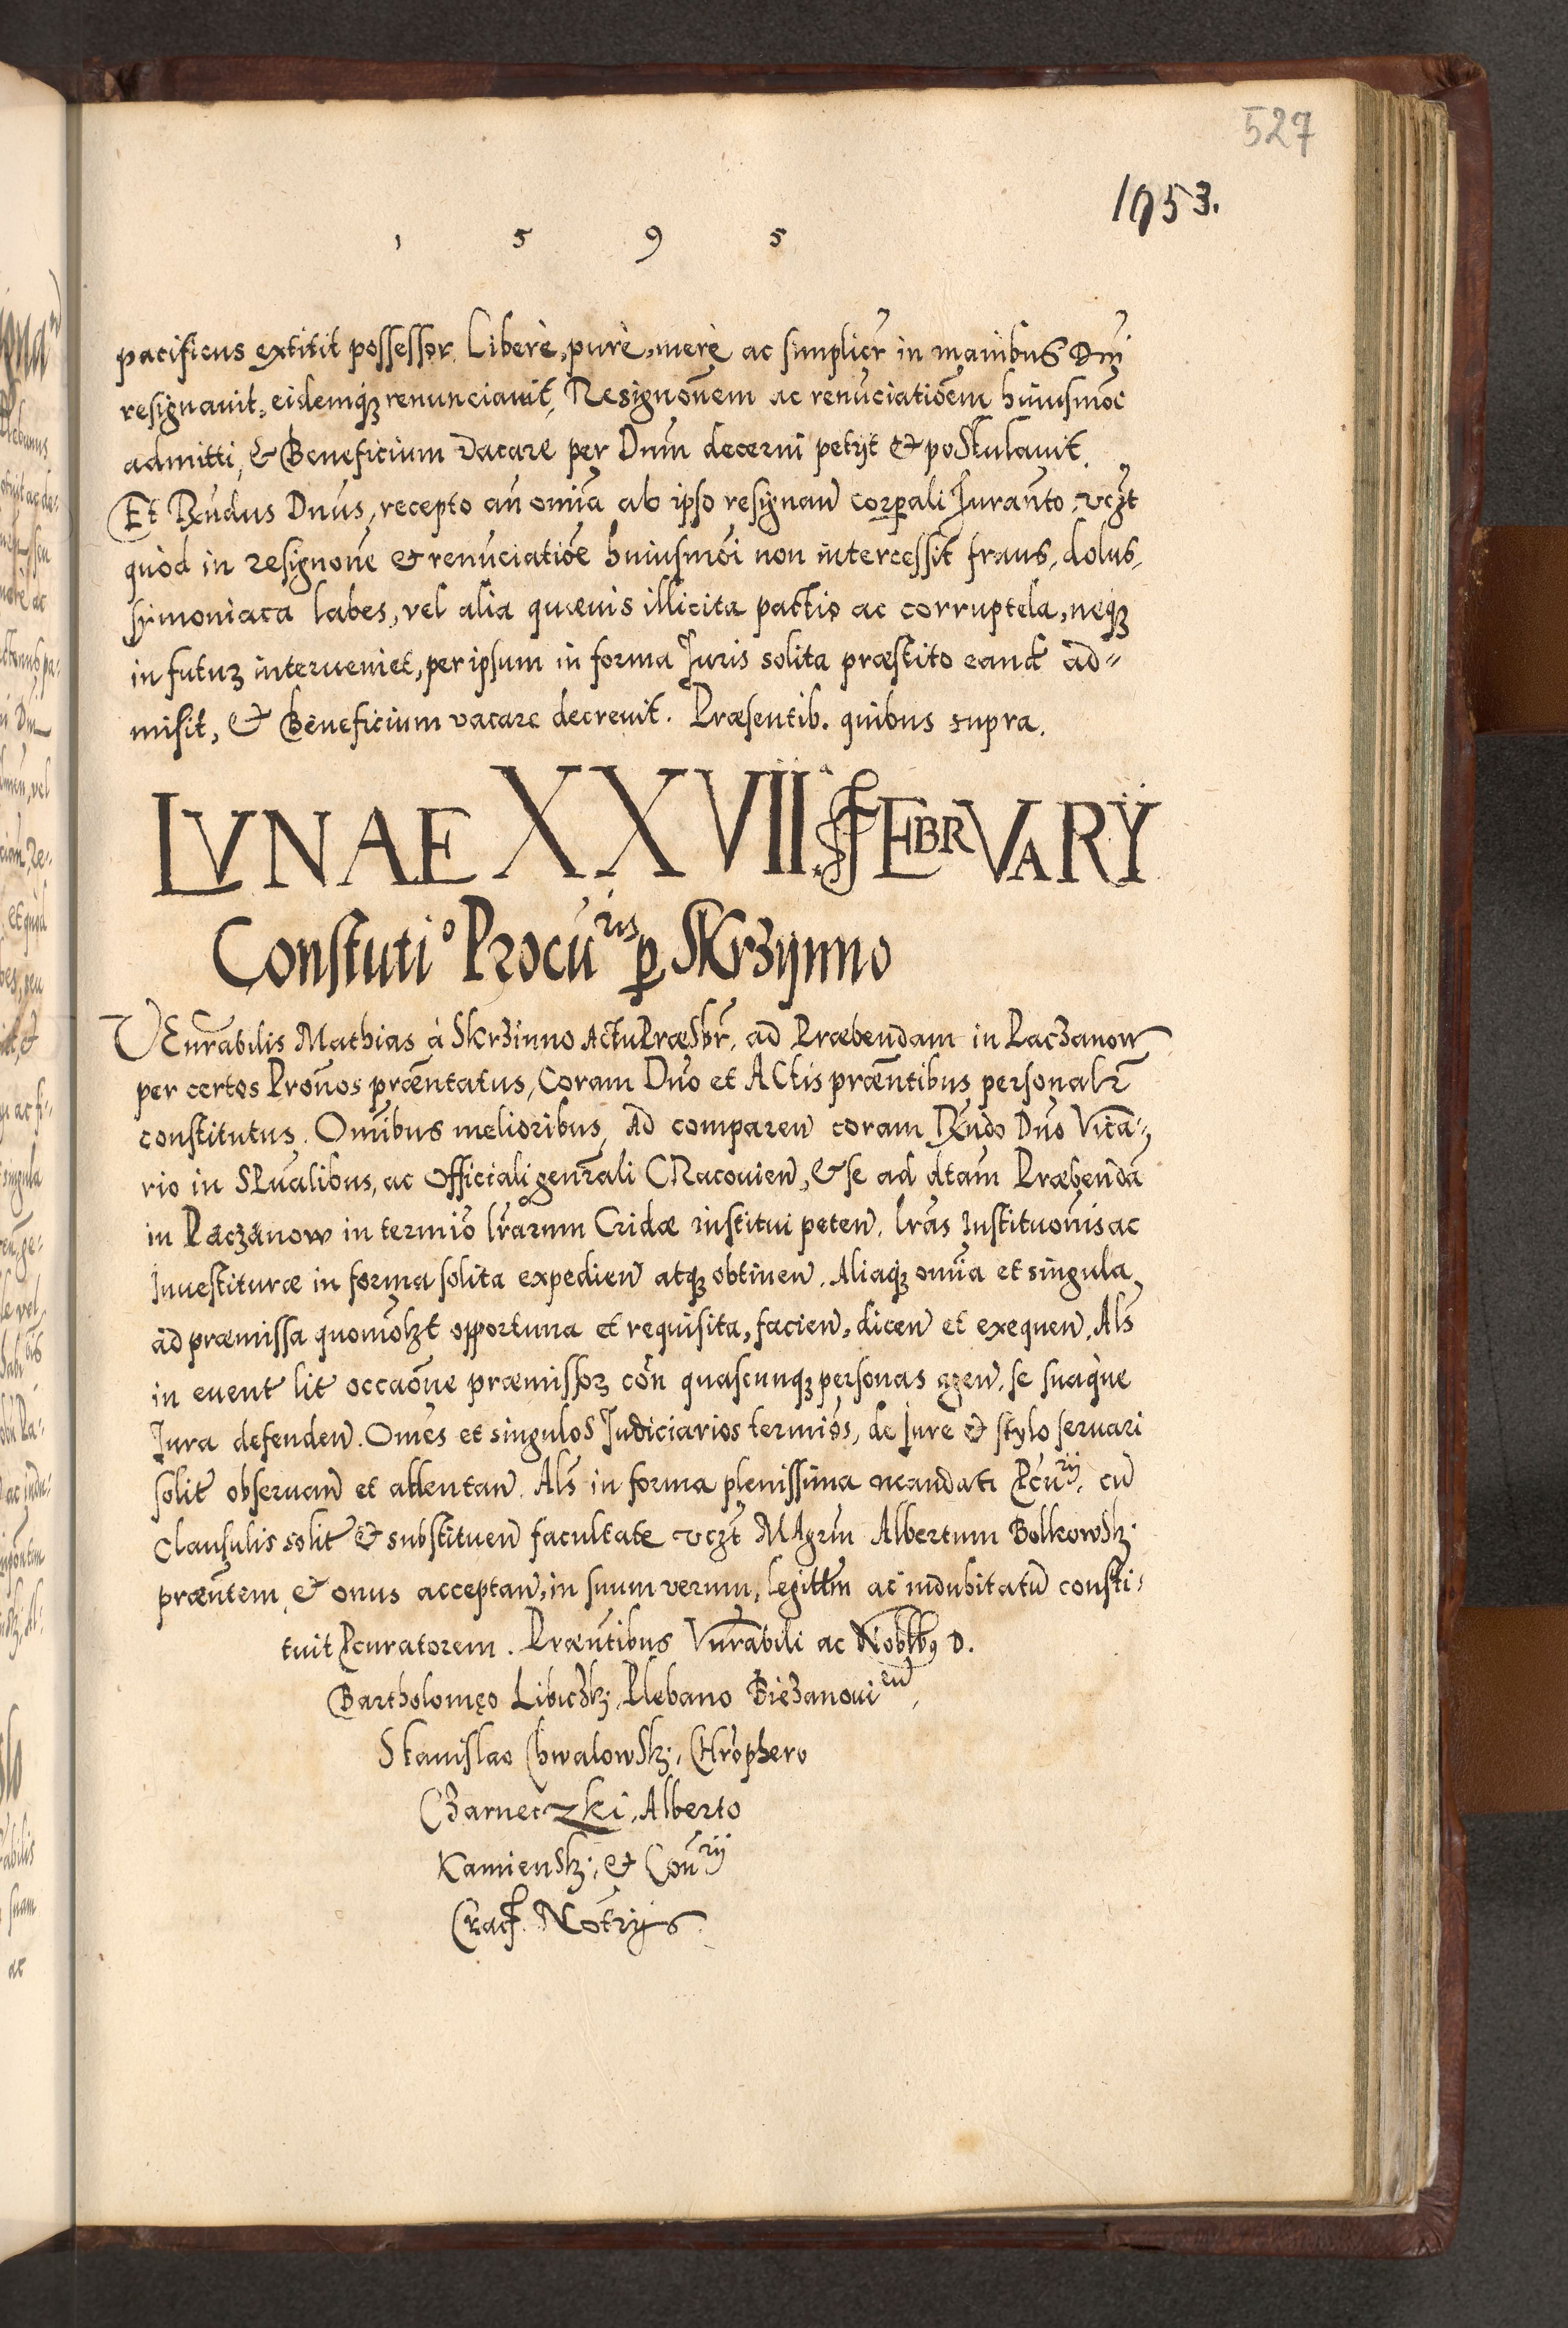 527
1053.
1 5 9 5
pacificus extitit possessor Liberè, purè, merè ac simplicr̃ in manibus Dnĩ
resignauit, eidemqꝫ renunciauit, Resignõnem ac renũciatiõem huiusmõi
admitti, & Beneficium vacare per Dnũm decerni petyt & postulauit.
Et Rñdus Dnũs, recepto añ omĩa ab ipso resignañ corꝑali Jurañto, vcꝫt
quòd in resignõne & renũciatiõe huiusmõi non intercessit fraus, dolus,
symoniaca labes, vel alia quæuis illicita pactio ac corruptela, neqꝫ
in futuꝝ interueniet, per ipsum in forma Juris solita præstito eand̃ ad=
misit, & Beneficium vacare decreuit. Præsentib. quibus supra.
LVNAE XXVII FEBRVARŸ
Constutiº Procuͬⁱˢ ꝑ Skrzynno
VEnrãbilis Mathias à Skrzinno Actu Præsbr̃, ad Præbendam in Paczanow
per certos Prõnos præñtatus, Coram Dño et Actis præñtibus personalr̃
constitutus. Omĩbus melioribus, Ad compareñ coram Rñdo Dño Vicã=
rio in Spũalibus, ac Officiali genr̃ali Cracouieñ, & se ad dtam Præbendã
in Paczanow in termiõ lr̃arum Cridæ institui peteñ. lrãs Instituõnis ac
Inuestituræ in forma solita expedieñ atqꝫ obtineñ. Aliaqꝫ omĩa et singula
ad præmissa quomõlꝫt opportuna et requisita, facieñ, diceñ et exequeñ. Als̃
in euent̃ lit̃ occaõne præmissoꝝ cõn quascunqꝫ personas ageñ, se suaq̀ue
Jura defendeñ. Omẽs et singulos Judiciarios termiõs, de Jure & stylo seruari
solit̃ obseruañ et attentañ. Als̃ in forma plenissima mandati Pcuͬⁱʲ, cũ
Clausulis solit̃ & substitueñ facultate vcꝫt MAgrũm Albertum Bolkowskꝫ
præñtem, & onus acceptañ, in suum verum, legittm̃ ac indubitatũ consti=
tuit Pcuratorem. Præñtibus Vnrãbili ac Nobilbꝫ D.
Bartholomęo Libiczkꝫ, Plebano Biezanouiᵉⁿ,
Stanislao Chwalowskꝫ, Chrõphero
Czarneczki, Alberto
Kamienskꝫ, & Conͬⁱʲ
Crac̃. Nõtrijs.